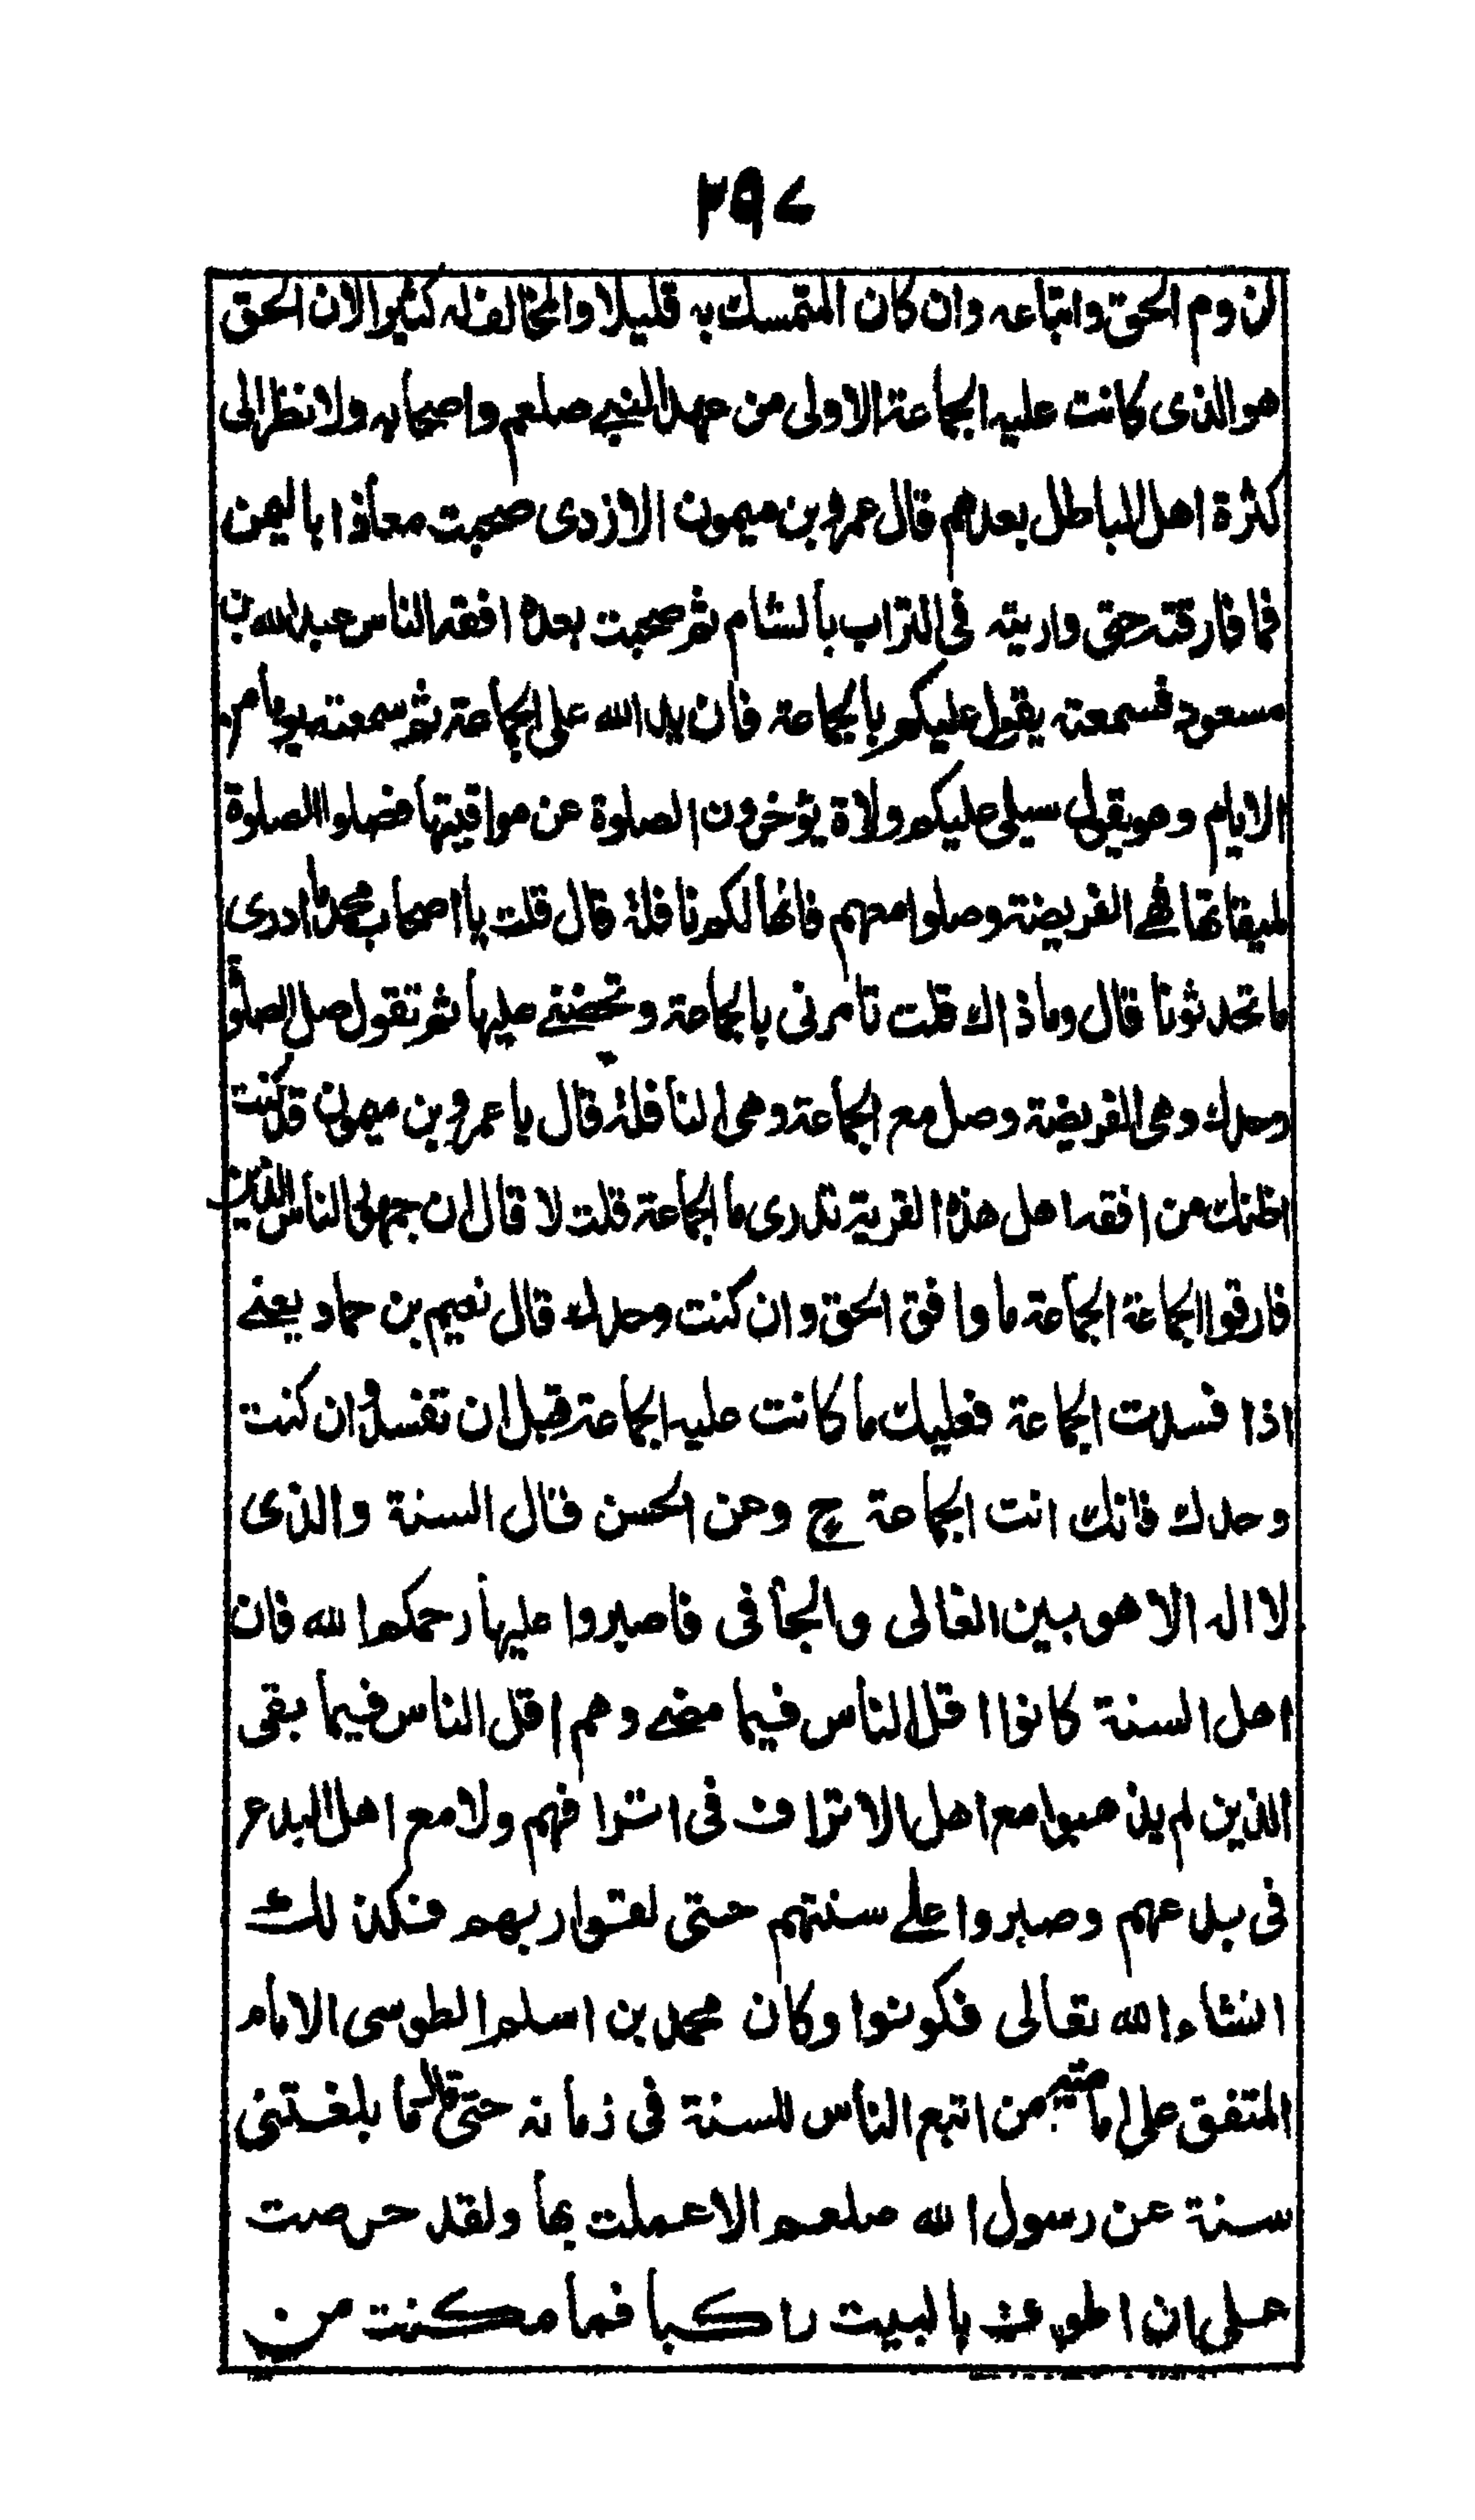 ٢٥٧
لزوم الحق واتباعه وان كان المتمسك به قليلا والمخالف له كثيرا لان الحق
هو الذى كانت عليه الجماعة الاولى من عهد النبي صلعم واصحابه ولا نظر الى
كثرة اهل الباطل بعدهم قال عمرو بن ميمون الازدى صحبت معاذا باليمن
فما فارقته حتى واريته فى التراب بالشام ثم صحبت بعده افقه الناس عبد الله بن
مسعود فسمعته يقول عليكم بالجماعة فان يد الله على الجماعة ثم سمعته يوما من
الايام وهو يقول سيلى عليكم ولاة يؤخرون الصلوة عن مواقيتها فصلوا الصلوة
لميقاتها فهي الفريضة وصلوا معهم فانها لكم نافلة قال قلت يا اصحاب محمد ما ادرى
ما تحدثونا قال وما ذاك قلت تامرنى بالجماعة وتحضني عليها ثم تقول صل الصلوة
وحدك وهى الفريضة وصل مع الجماعة وهى النافلة قال يا عمرو بن ميمون قد كنت
اظنك من افقه اهل هذه القرية تدرى ما الجماعة قلت لا قال ان جمهور الناس الذين
فارقوا الجماعة الجماعة ما وافق الحق وان كنت وحدك قال نعيم بن حماد يعني
اذا فسدت الجماعة فعليك ما كانت عليه الجماعة قبل ان تفسد وان كنت
وحدك فانك انت الجماعة ح وعن الحسن قال السنة والذى
لا اله الا هو بين الغالى والجافى فاصبروا عليها رحمكم الله فان
اهل السنة كانوا اقل الناس فيما مضى وهم اقل الناس فيما بقى
الذين لم يذهبوا مع اهل الاتراف فى اترافهم ولا مع اهل البدع
فى بدعهم وصبروا على سنتهم حتى لقوا ربهم فكذلك
انشاء الله تعالى فكونوا وكان محمد بن اسلم الطوسى الامام
المتفق على امامته من اتبع الناس للسنة فى زمانه حتى قال ما بلغتنى
سنة عن رسول الله صلعم الا عملت بها ولقد حرصت
على ان اطوف بالبيت راكبا فما مكنت من